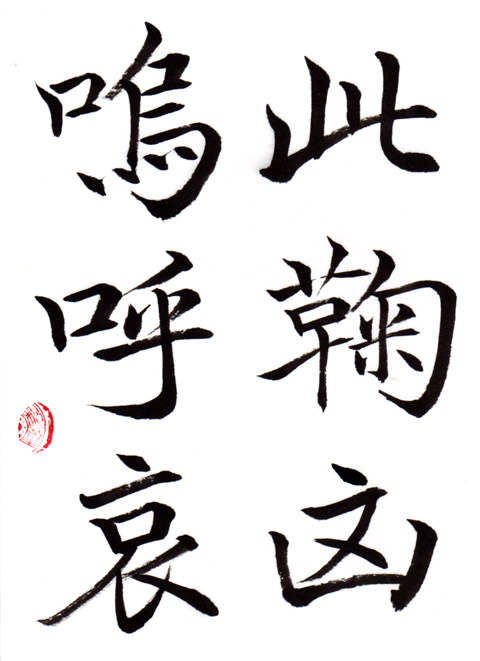 此鞠凶
嗚呼哀